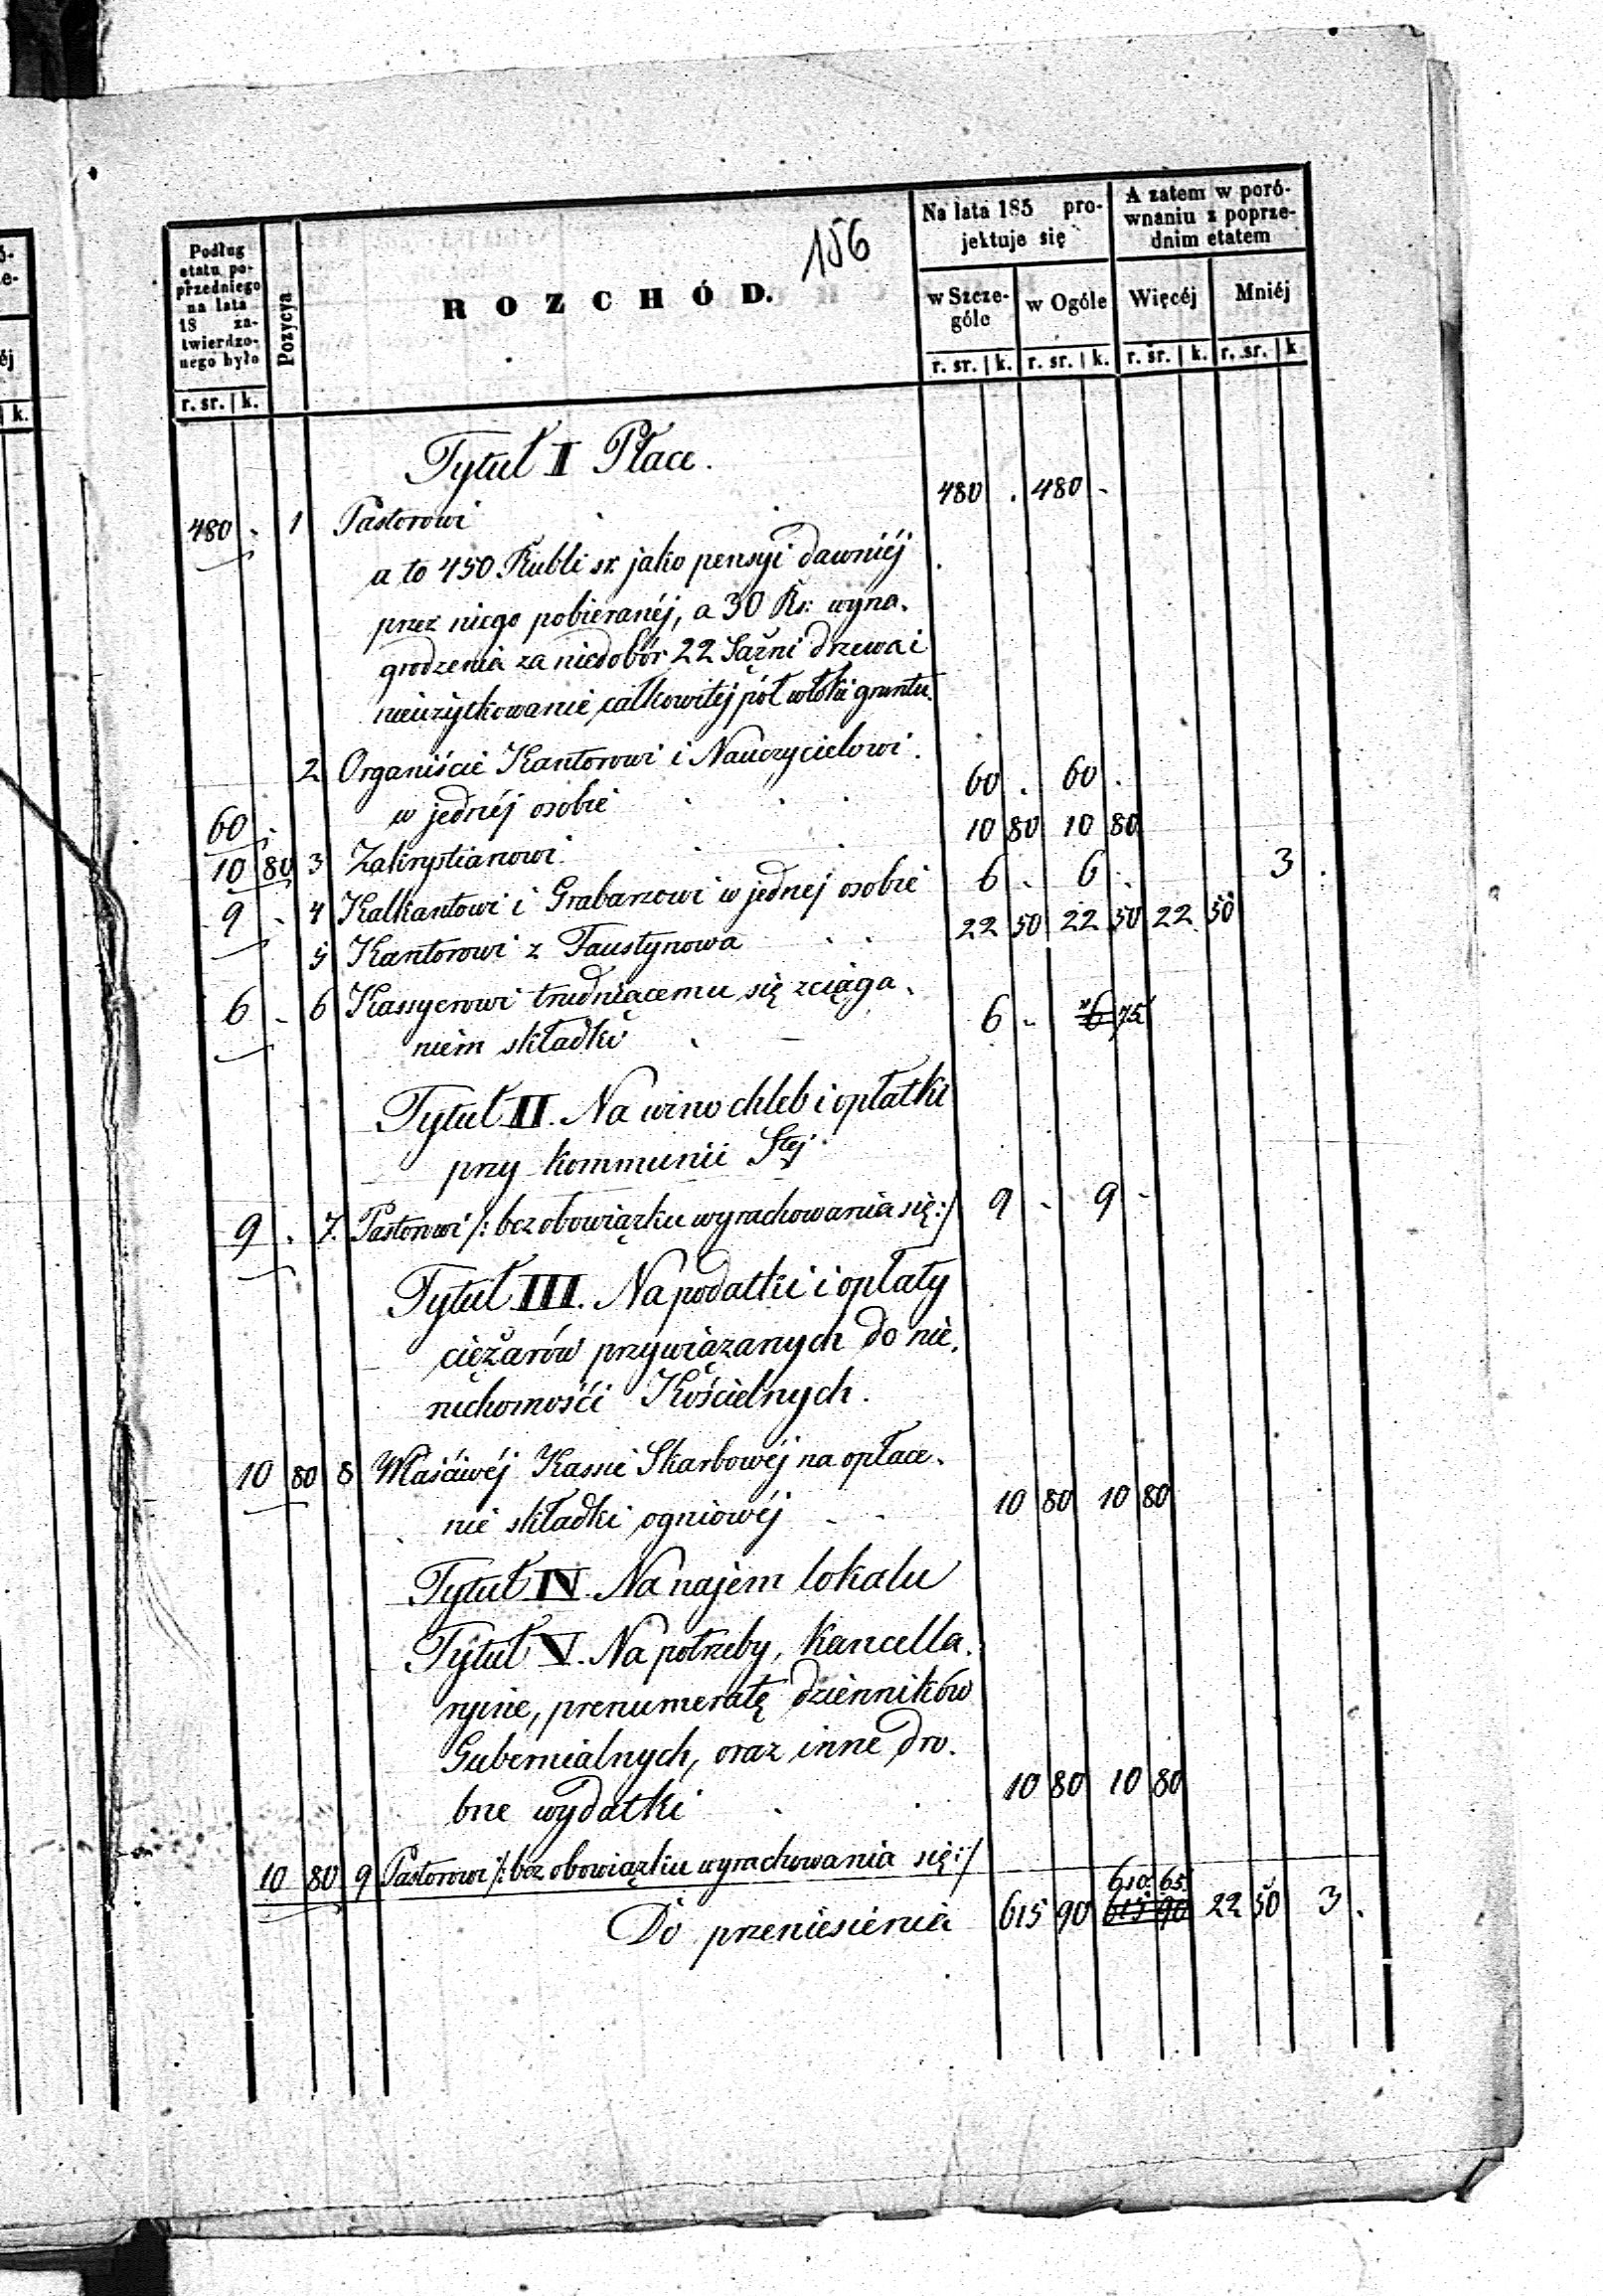 156
Podług
etatu po-
przedniego
na lata
18 za-
twierdzo-
nego było
r. sr. | k.
Pozycya
ROZCHÓD.
Na lata 185 pro-
jektuje się
w Szcze-
góle
w Ogóle
r. sr. | k. r. sr. | k.
A zatem w poró-
wnaniu z poprze-
dnim etatem
Więcéj
Mniéj
r. sr. | k. r. sr. | k
Tytuł I Płace.
480 - 1 Pastorowi 480 . 480 -
a to 450 Rubli sr. jako pensyi dawniéj
przez niego pobieranéj, a 30 Rs. wyna-
grodzenia za niedobór 22 Sążni drzewa i
nieużytkowanie całkowitéj pół włóki gruntu.
2 Organiście Kantorowi i Nauczycielowi
60 . w jednéj osobie 60 . 60 .
10 80 3 Zakrystianowi 10 80 10 80
9 - 4 Kalkantowi i Grabarzowi w jednej osobie 6 . 6 . 3 .
5 Kantorowi z Faustynowa 22 50 22 50 22 50
6 - 6 Kassyerowi trudniącemu się zciąga-
niem składki 6 - 6 75
Tytuł II. Na wino chleb i opłatki
przy kommunii Stej
9 . 7. Pastorowi /: bez obowiązku wyrachowania się :/ 9 - 9 -
Tytuł III. Na podatki i opłaty
ciężarów przywiązanych do nie-
ruchomości Kościelnych.
10 80 8 Właściwéj Kassie Skarbowéj na opłace-
nie składki ogniowéj 10 80 10 80
Tytuł IV. Na najem lokalu
Tytuł V. Na potrzeby, kancella-
ryjne, prenumeratę dzienników
Gubernialnych, oraz inne dro-
bne wydatki 10 80 10 80
10 80 9 Pastorowi /: bez obowiązku wyrachowania się :/
610 65
Do przeniesienia 615 90 615 90 22 50 3 .